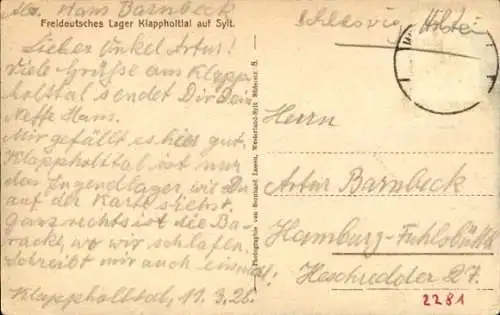 Abs. Hans Barnbeck
Freideutsches Lager Klappholttal auf Sylt.
Lieber Onkel Artur!
Viele Grüsse am Klapp
holttal sendet Dir Dein
Neffe Hans.
Mir gefällt es hier gut.
Klappholttal ist nur
das Jugendlager, wie Du
auf der Karte siehst.
Ganz rechts ist die Ba-
racke, wo wir schlafen.
Schreibt mir auch einmal!
Klappholttal, 11.3.26.
Photographie von Bernhard Lassen, Westerland-Sylt
Schleswig Holstein
Herrn
Artur Barnbeck
Hamburg-Fuhlsbüttel
Heschredder 27.
2281